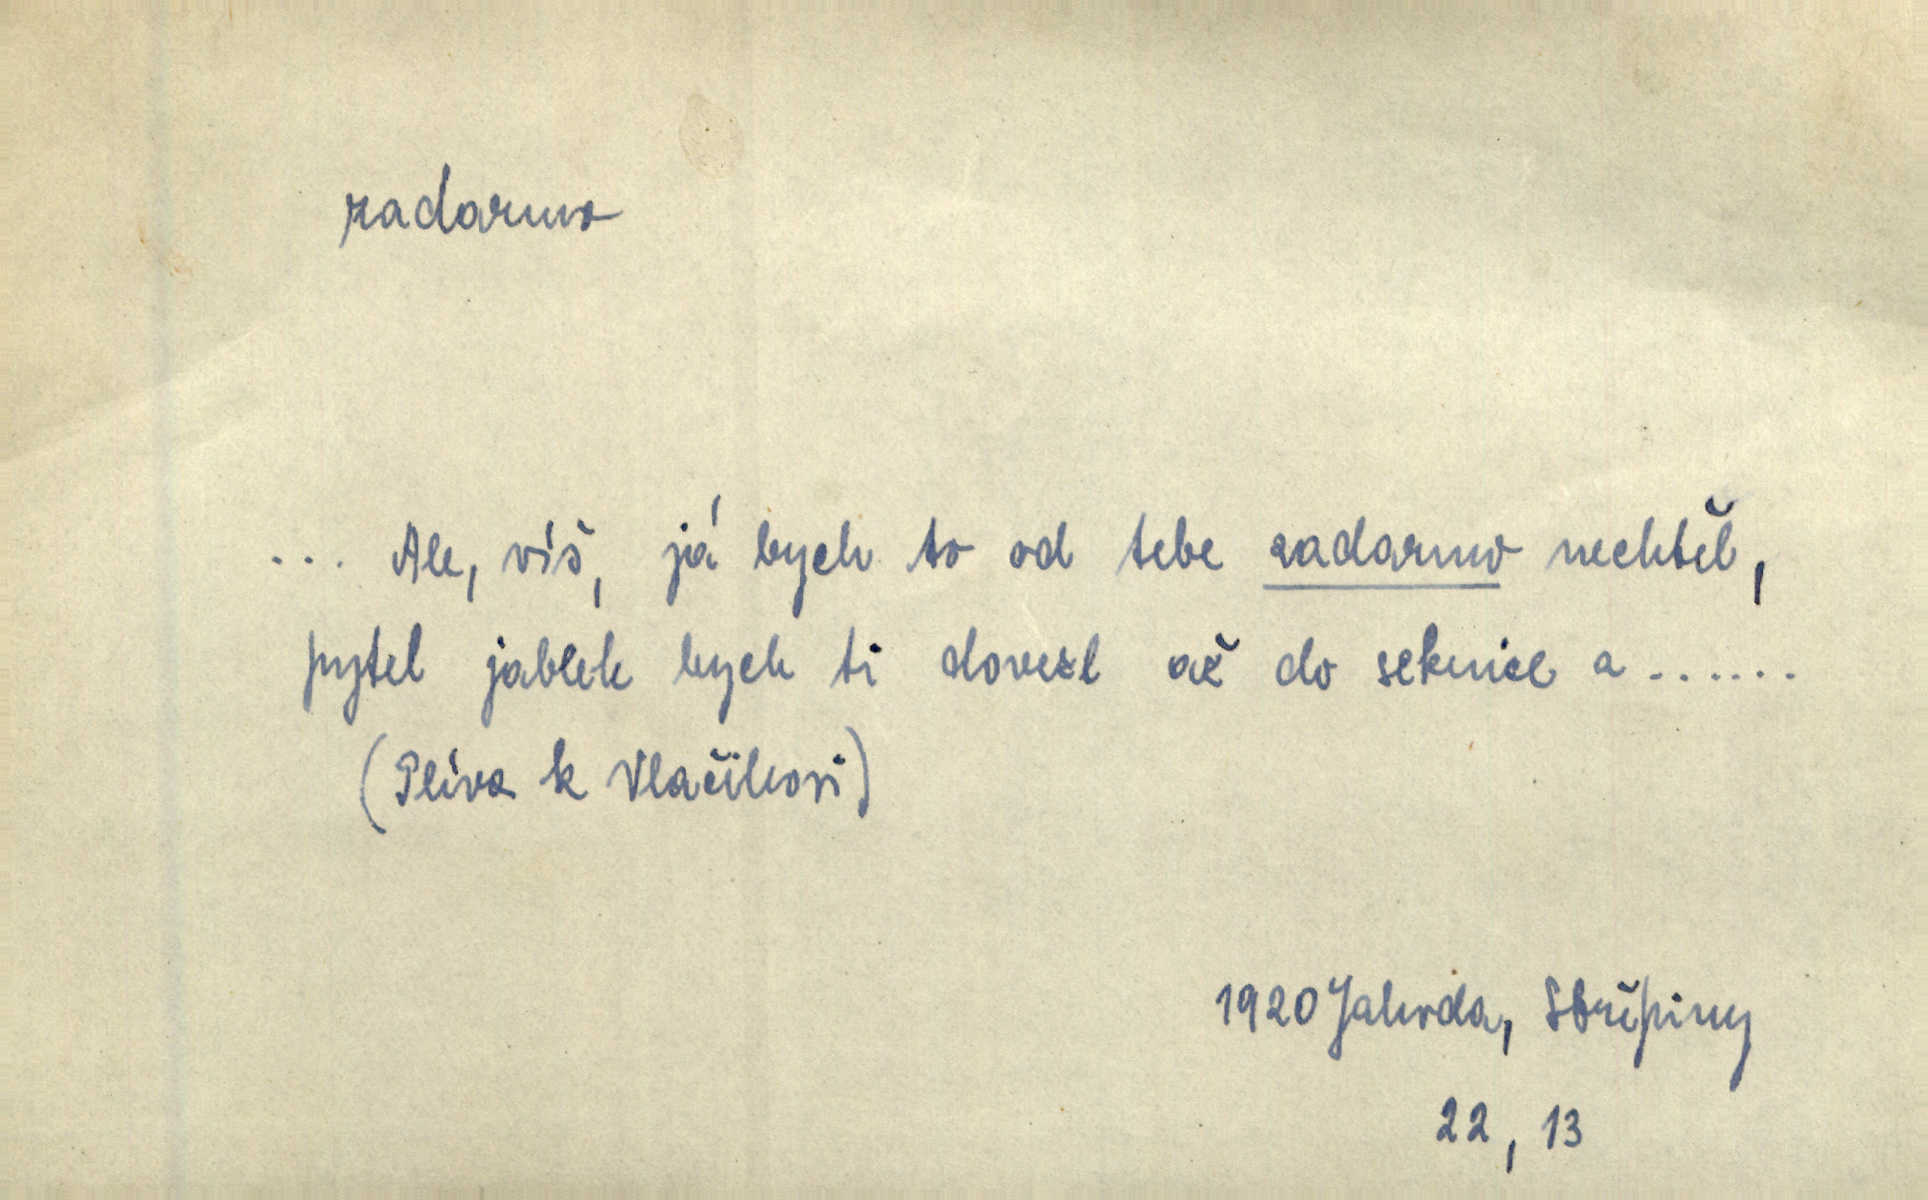 zadarmo
... Ale, víš, já bych to od tebe zadarmo nechtěl,
pytel jablek bych ti dovezl až do seknice a .......
(Plíva k Vlačihovi)
1920 Jahoda, Střípiny
22, 13